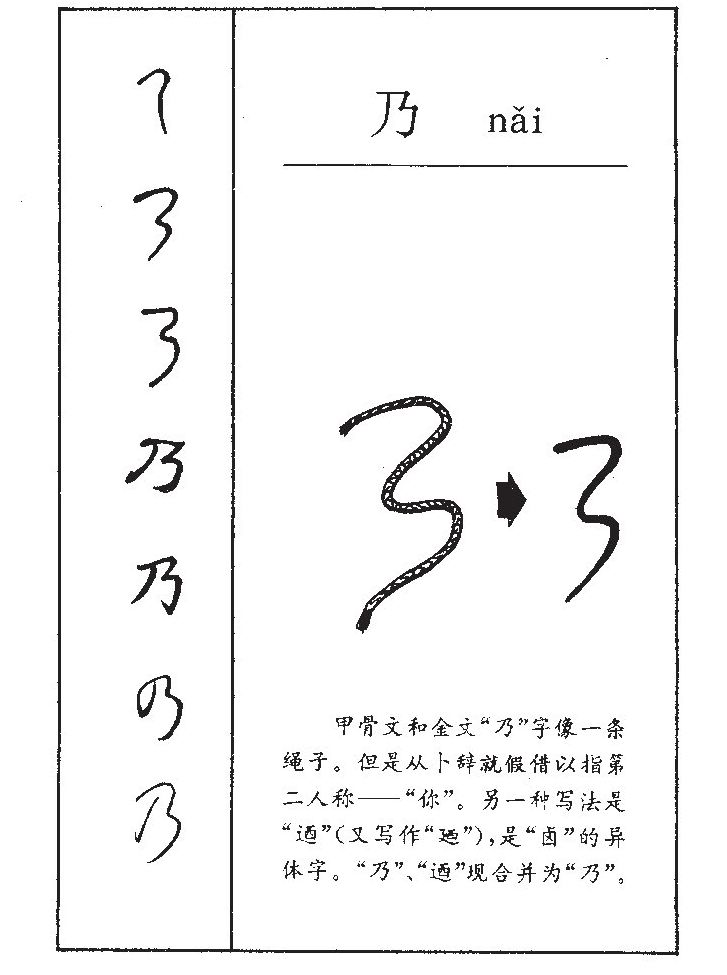 乃 nǎi
甲骨文和金文“乃”字像一条
绳子。但是从卜辞就假借以指第
二人称——“你”。另一种写法是
“迺”(又写作“廼”),是“卣”的异
体字。“乃”、“迺”现合并为“乃”。
乃
乃
乃
乃